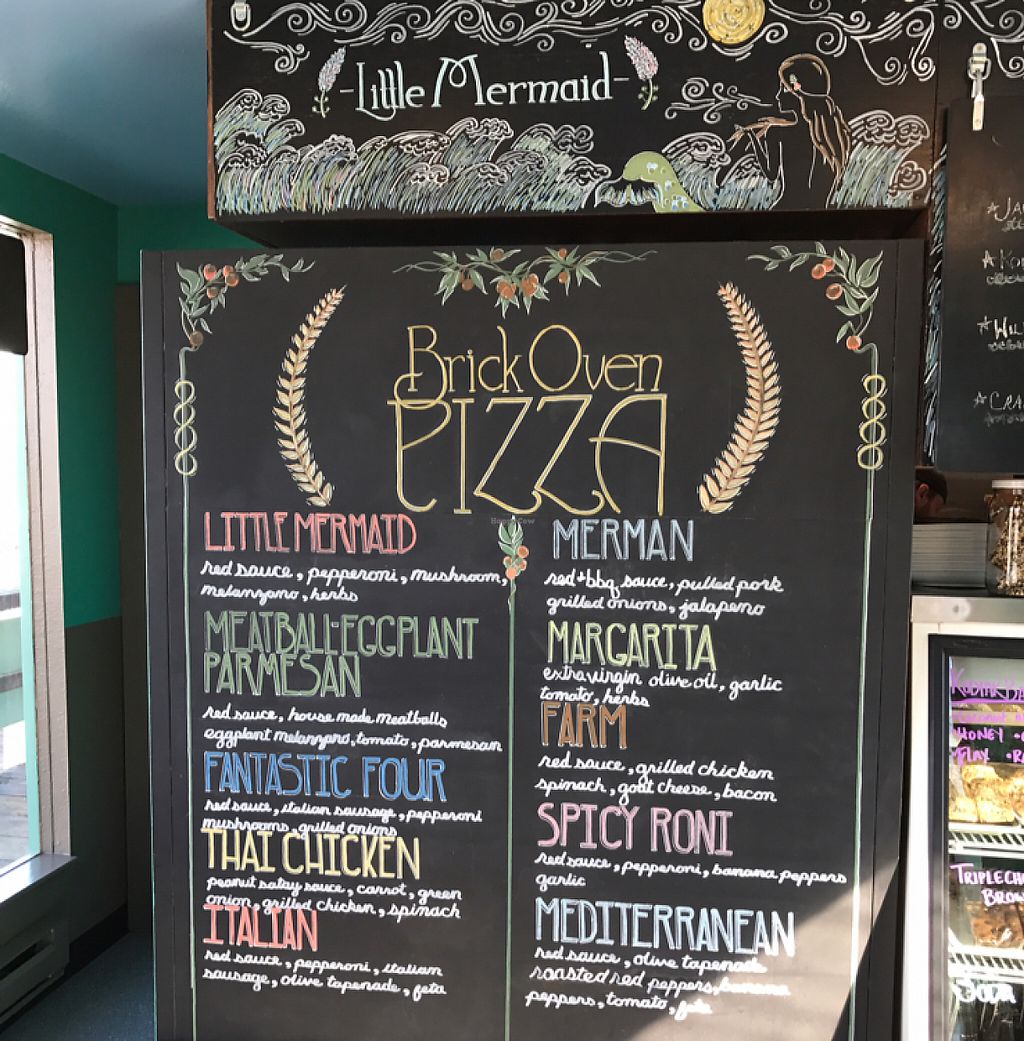 -Little Mermaid-
Brick Oven
PIZZA
LITTLE MERMAID
red sauce, pepperoni, mushroom,
melanzano, herbs
MEATBALL-EGGPLANT
PARMESAN
red sauce, house made meatballs
eggplant melanzano, tomato, parmesan
FANTASTIC FOUR
red sauce, italian sausage, pepperoni
mushrooms, grilled onions
THAI CHICKEN
peanut satay sauce, carrot, green
onion, grilled chicken, spinach
ITALIAN
red sauce, pepperoni, italian
sausage, olive tapenade, feta
MERMAN
red+bbq sauce, pulled pork
grilled onions, jalapeno
MARGARITA
extra virgin olive oil, garlic
tomato, herbs
FARM
red sauce, grilled chicken
spinach, goat cheese, bacon
SPICY RONI
red sauce, pepperoni, banana peppers
garlic
MEDITERRANEAN
red sauce, olive tapenade
roasted red peppers, banana
peppers, tomato, feta
HONEY
FLAX
TRIPLE